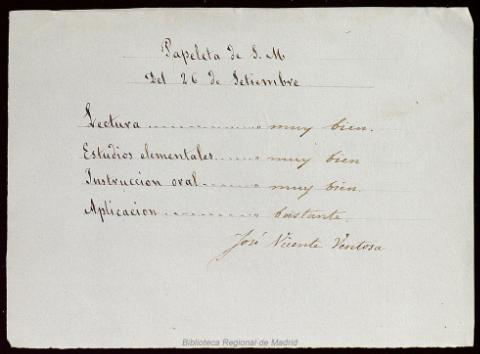 Papeleta de S. M
Del 26 de Setiembre
Lectura muy bien.
Estudios elementales muy bien
Instruccion oral muy bien
Aplicacion bastante.
José Vicente Ventosa
Biblioteca Regional de Madrid